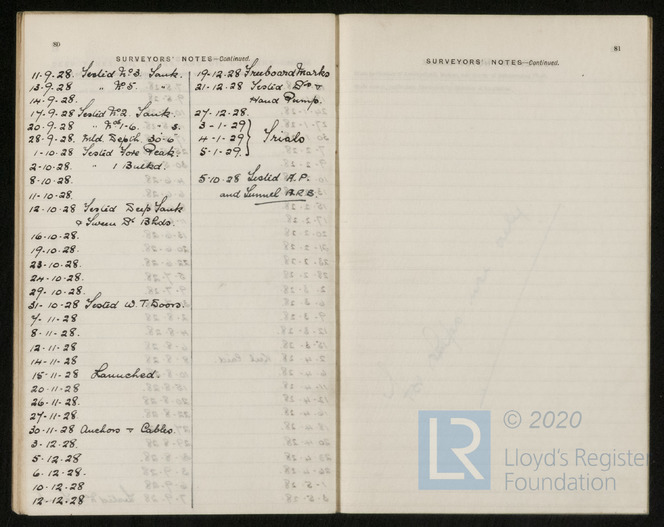 80
SURVEYORS' NOTES—Continued.
11-9-28. Tested No 3. Tank.
13-9-28. " No 5. "
14-9-28.
17-9-28 Tested No 2. Tank.
20-9-28 " No 1-6. " s.
28-9-28. Mld. Depth. 30-6
1-10-28 Tested Fore Peak.
2-10-28 " 1 Bulkd.
8-10-28.
11-10-28.
12-10-28 Tested Deep Tank
& Tween Dk Bhds.
16-10-28.
19-10-28.
23-10-28.
24-10-28.
29-10-28.
31-10-28 Tested W.T. Doors.
7-11-28
8-11-28.
12-11-28
14-11-28
15-11-28 Launched.
20-11-28
26-11-28.
27-11-28.
30-11-28 Anchors & Cables.
3-12-28.
5-12-28
6-12-28.
10-12-28
12-12-28
19-12-28 Freeboard Marks
21-12-28 Tested Dks &
Hand Pump.
27-12-28.
3-1-29
4-1-29 Trials
5-1-29.
5-10-28 Tested A.P.
and Tunnel A.R.B.
81
SURVEYORS' NOTES—Continued.
LR © 2020
Lloyd's Register
Foundation